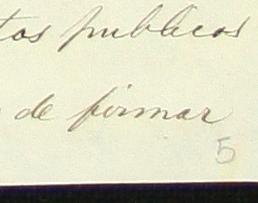 tos publicos
de firmar
5